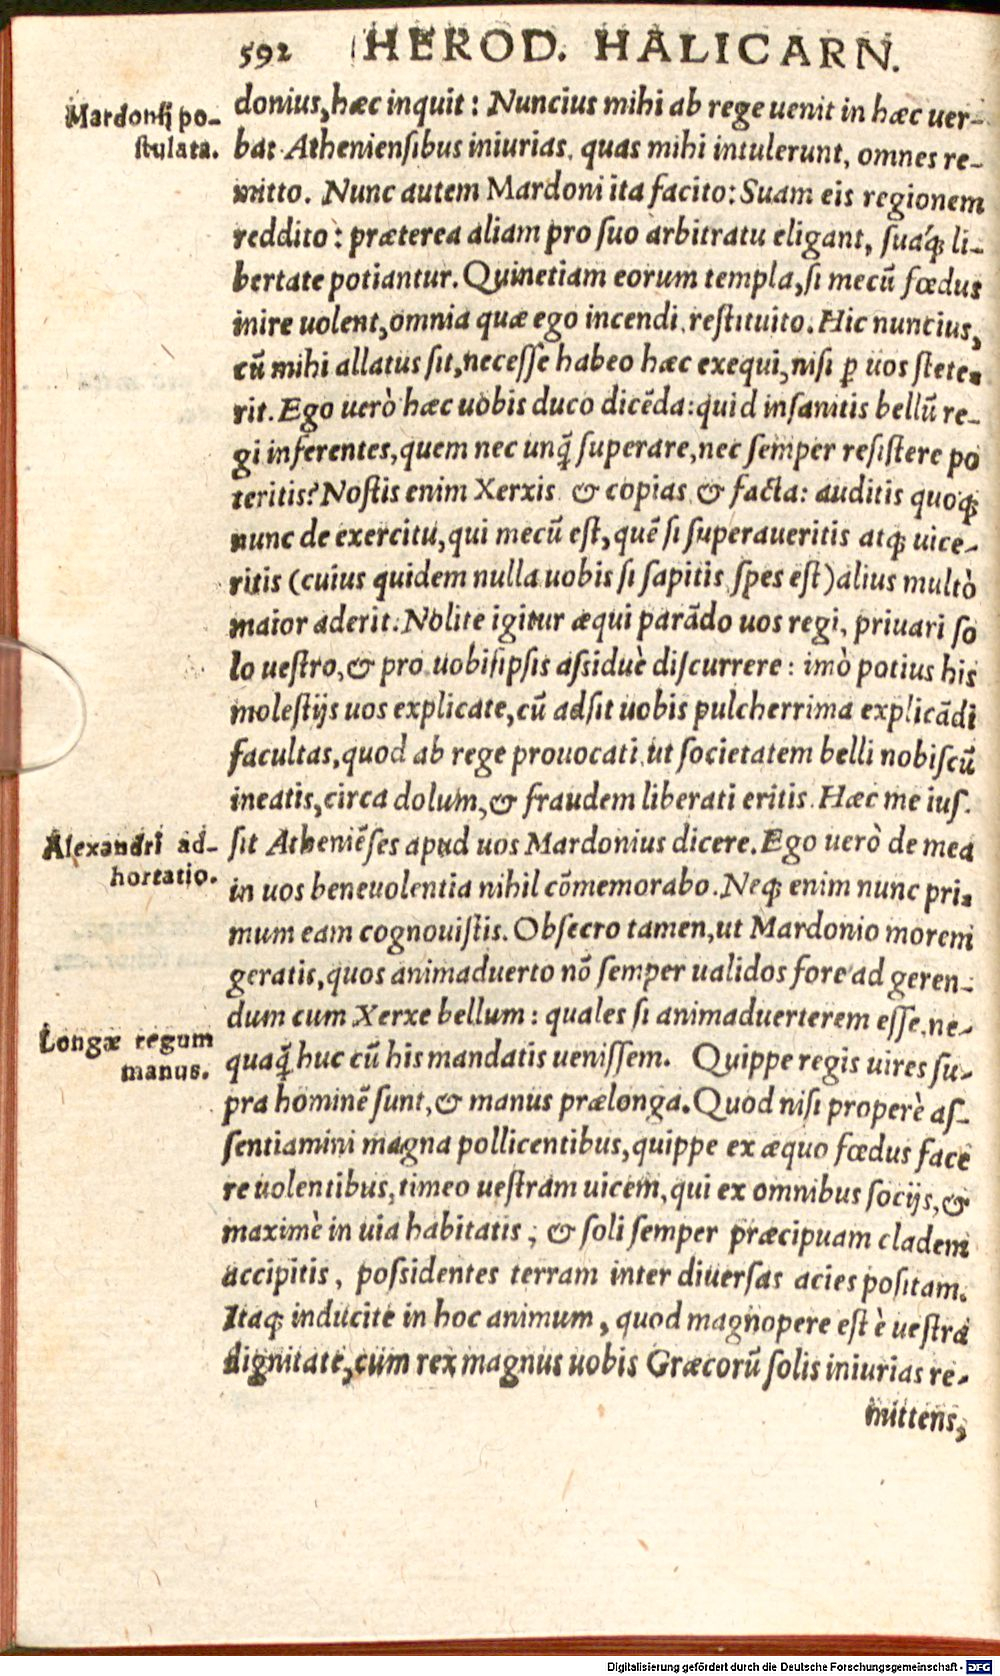 592 HEROD. HALICARN.
Mardonij po-
stulata.
donius, hæc inquit: Nuncius mihi ab rege uenit in hæc uer-
ba: Atheniensibus iniurias, quas mihi intulerunt, omnes re-
mitto. Nunc autem Mardoni ita facito: Suam eis regionem
reddito: præterea aliam pro suo arbitratu eligant, suaq́ꝫ li-
bertate potiantur. Quinetiam eorum templa, si mecũ fœdus
inire uolent, omnia quæ ego incendi, restituito. Hic nuncius,
cũ mihi allatus sit, necesse habeo hæc exequi, nisi ꝑ uos stete-
rit. Ego uerò hæc uobis duco dicẽda: quid insanitis bellũ re-
gi inferentes, quem nec unq̃ superare, nec semper resistere po
teritis? Nostis enim Xerxis & copias & facta: auditis quoqꝫ
nunc de exercitu, qui mecũ est, quẽ si superaueritis atqꝫ uice-
ritis (cuius quidem nulla uobis si sapitis spes est) alius multò
maior aderit. Nolite igitur æqui parãdo uos regi, priuari so
lo uestro, & pro uobisipsis assiduè discurrere: imò potius his
molestijs uos explicate, cũ adsit uobis pulcherrima explicãdi
facultas, quod ab rege prouocati ut societatem belli nobiscũ
ineatis, circa dolum, & fraudem liberati eritis. Hæc me ius-
Alexandri ad-
hortatio.
sit Atheniẽses apud uos Mardonius dicere. Ego uerò de mea
in uos beneuolentia nihil cõmemorabo. Neqꝫ enim nunc pri-
mum eam cognouistis. Obsecro tamen, ut Mardonio morem
geratis, quos animaduerto nõ semper ualidos fore ad geren-
dum cum Xerxe bellum: quales si animaduerterem esse, ne-
Longæ regum
manus.
quaq̃ huc cũ his mandatis uenissem. Quippe regis uires su-
pra hominẽ sunt, & manus prælonga. Quod nisi properè as-
sentiamini magna pollicentibus, quippe ex æquo fœdus face
re uolentibus, timeo uestram uicem, qui ex omnibus socijs, &
maximè in uia habitatis, & soli semper præcipuam cladem
accipitis, possidentes terram inter diuersas acies positam.
Itaqꝫ inducite in hoc animum, quod magnopere est è uestra
dignitate, cum rex magnus uobis Græcorũ solis iniurias re-
mittens,
Digitalisierung gefördert durch die Deutsche Forschungsgemeinschaft - DFG